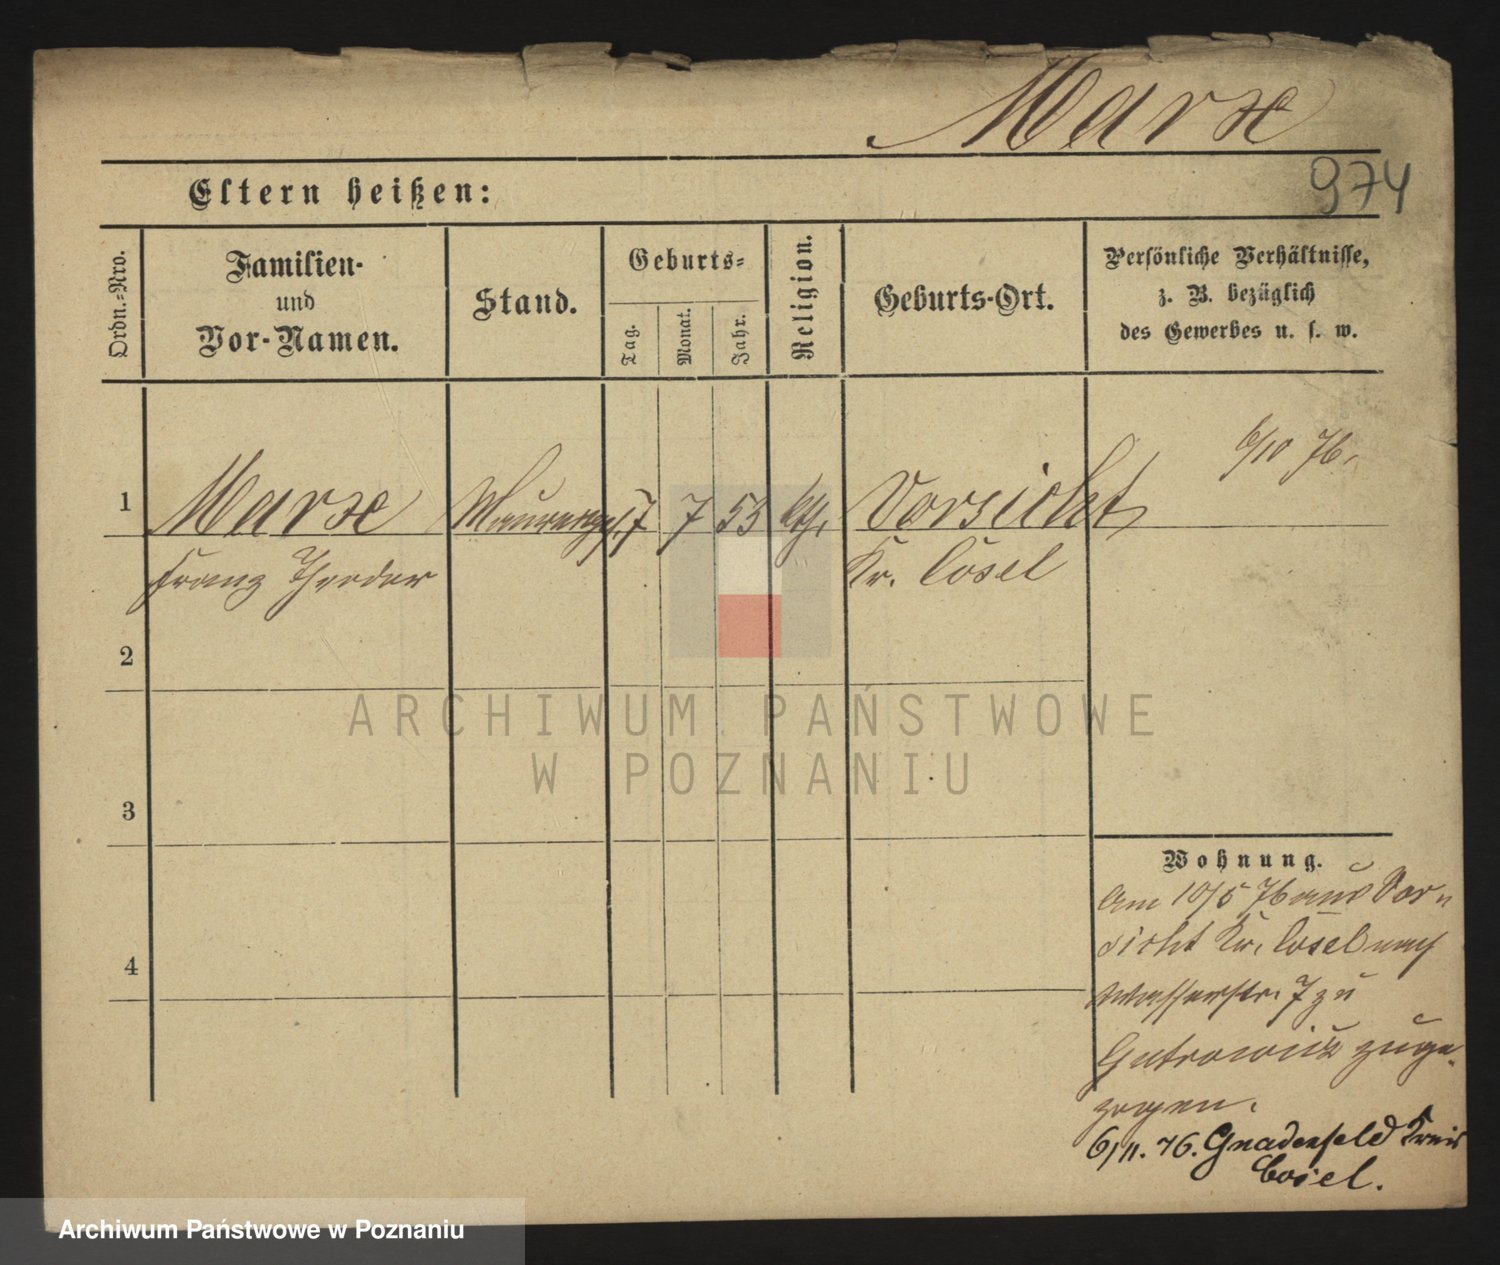 Marx
Eltern heißen:
974
Ordn.=Nro.
Familien-
und
Vor-Namen.
Stand.
Geburts=
Tag.
Monat.
Jahr.
Religion.
Geburts-Ort.
Persönliche Verhältnisse,
z. B. bezüglich
des Gewerbes u. s. w.
6/10 76.
1
Marx
Maurerges.
7
7
53
kth.
Vorsicht
Franz Theodor
Kr. Cosel
2
3
4
ARCHIWUM PAŃSTWOWE
W POZNANIU
Wohnung.
Am 10/5 76 aus Vor-
sicht Kr. Cosel nach
Wasserstr. 7 zu
zuge-
zogen.
6/11. 76. Gnadenfeld Kreis
Cosel.
Archiwum Państwowe w Poznaniu